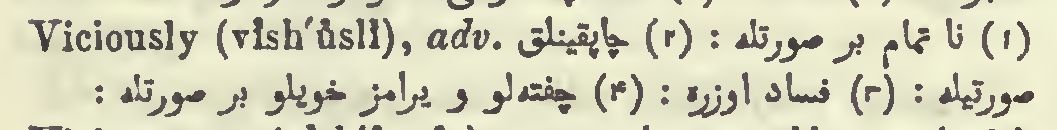 Viciously (vĭsh′ŭslĭ), adv. (۱) نا تمام بر صورتله : (۲) چاپقینلق
صورتیله : (۳) فساد اوزره : (۴) چفته‌لو و یرامز خویلو بر صورتله :